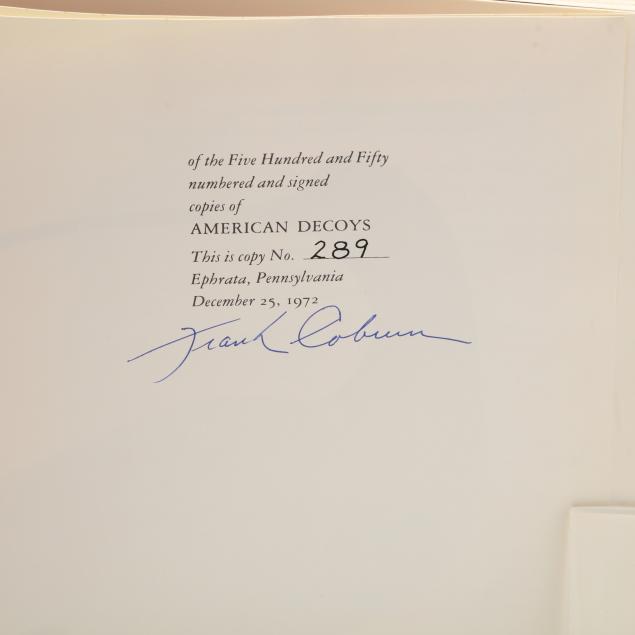 of the Five Hundred and Fifty
numbered and signed
copies of
AMERICAN DECOYS
This is copy No. 289
Ephrata, Pennsylvania
December 25, 1972
Frank Coburn